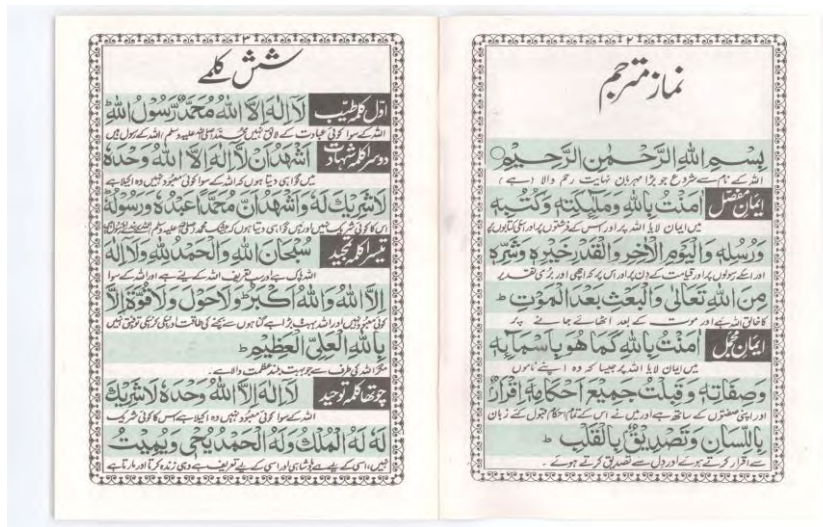 ٢
نماز مترجم
بِسْمِ اللهِ الرَّحْمٰنِ الرَّحِيْمِ
اللہ کے نام سے شروع جو بڑا مہربان نہایت رحم والا (ہے)
ایمان مفصل اٰمَنْتُ بِاللهِ وَمَلٰٓئِكَتِهٖ وَكُتُبِهٖ
میں ایمان لایا اللہ پر اور اس کے فرشتوں پر اور اسکی کتابوں پر
وَرُسُلِهٖ وَالْيَوْمِ الْاٰخِرِ وَالْقَدْرِ خَيْرِهٖ وَشَرِّهٖ
اور اسکے رسولوں پر اور قیامت کے دن پر اور اس پر کہ اچھی اور بری تقدیر
مِنَ اللهِ تَعَالٰى وَالْبَعْثِ بَعْدَ الْمَوْتِ ط
کا خالق اللہ ہے اور موت کے بعد اٹھائے جانے پر
ایمان مجمل اٰمَنْتُ بِاللهِ كَمَا هُوَ بِاَسْمَآئِهٖ
میں ایمان لایا اللہ پر جیسا کہ وہ اپنے ناموں
وَصِفَاتِهٖ وَقَبِلْتُ جَمِيْعَ اَحْكَامِهٖ اِقْرَارٌ
اور اپنی صفتوں کے ساتھ ہے اور میں نے اس کے تمام احکام قبول کئے زبان
بِاللِّسَانِ وَتَصْدِيْقٌ بِالْقَلْبِ ط
سے اقرار کرتے ہوئے اور دل سے تصدیق کرتے ہوئے ۔
٣
شش کلمے
اوّل کلمہ طیّب لَآ اِلٰهَ اِلَّا اللهُ مُحَمَّدٌ رَّسُوْلُ اللهِ
اللہ کے سوا کوئی عبادت کے لائق نہیں محمد صلی اللہ علیہ وسلم اللہ کے رسول ہیں
دوسرا کلمہ شہادت اَشْهَدُ اَنْ لَّآ اِلٰهَ اِلَّا اللهُ وَحْدَهٗ
میں گواہی دیتا ہوں کہ اللہ کے سوا کوئی معبود نہیں وہ اکیلا ہے
لَا شَرِيْكَ لَهٗ وَاَشْهَدُ اَنَّ مُحَمَّدًا عَبْدُهٗ وَرَسُوْلُهٗ
اس کا کوئی شریک نہیں اور میں گواہی دیتا ہوں کہ محمد صلی اللہ علیہ وسلم
تیسرا کلمہ تمجید سُبْحَانَ اللهِ وَالْحَمْدُ لِلّٰهِ وَلَآ اِلٰهَ
اللہ پاک ہے اور سب تعریف اللہ کے لیے ہے اور اللہ کے سوا
اِلَّا اللهُ وَاللهُ اَكْبَرُ ط وَلَا حَوْلَ وَلَا قُوَّةَ اِلَّا
کوئی معبود نہیں اور اللہ بہت بڑا ہے گناہوں سے بچنے کی طاقت اور نیکی کرنیکی توفیق نہیں
بِاللهِ الْعَلِيِّ الْعَظِيْمِ ط
مگر اللہ کی طرف سے جو بہت بلند عظمت والا ہے ۔
چوتھا کلمہ توحید لَآ اِلٰهَ اِلَّا اللهُ وَحْدَهٗ لَا شَرِيْكَ
اللہ کے سوا کوئی معبود نہیں وہ اکیلا ہے اس کا کوئی شریک
لَهٗ لَهُ الْمُلْكُ وَلَهُ الْحَمْدُ يُحْيٖ وَيُمِيْتُ
نہیں، اسی کے لیے ہے بادشاہی اور اسی کے لیے تعریف ہے وہی زندہ کرتا اور مارتا ہے